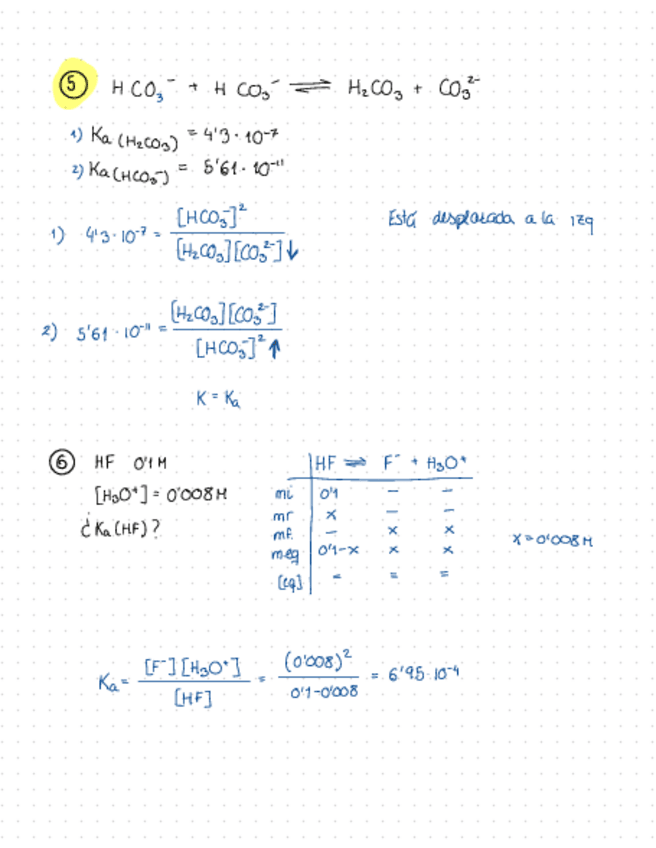 5 HCO₃⁻ + HCO₃⁻ ⇌ H₂CO₃ + CO₃²⁻
1) Ka (H₂CO₃) = 4'3·10⁻⁷
2) Ka (HCO₃⁻) = 5'61·10⁻¹¹
1) 4'3·10⁻⁷ = [HCO₃⁻]² / [H₂CO₃][CO₃²⁻]↓ Está desplazada a la izq
2) 5'61·10⁻¹¹ = [H₂CO₃][CO₃²⁻] / [HCO₃⁻]²↑
K = Ka
6 HF 0'1M
[H₃O⁺] = 0'008M
¿Ka (HF)?
HF ⇌ F⁻ + H₃O⁺
mi 0'1 – –
mr x – –
mf – x x
meq 0'1-x x x
[eq] = = =
x = 0'008M
Ka = [F⁻][H₃O⁺] / [HF] = (0'008)² / 0'1-0'008 = 6'95·10⁻⁴